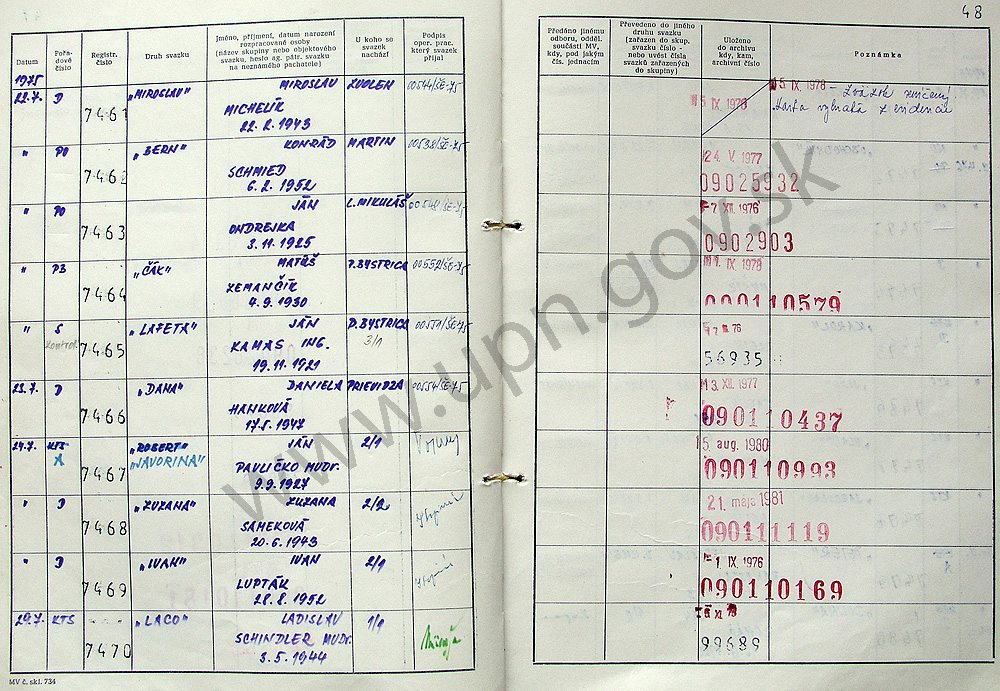 48
Datum
Pořa-
dové
číslo
Registr.
číslo
Druh svazku
Jméno, příjmení, datum narození
rozpracované osoby
(název skupiny nebo objektového
svazku, heslo ag. pátr. svazku
na neznámého pachatele)
U koho se
svazek
nachází
Podpis
oper. prac.
který svazek
přijal
Předáno jinému
odboru, odděl.
součásti MV,
kdy, pod jakým
čís. jednacím
Převedeno do jiného
druhu svazku
(zařazen do skup.
svazku číslo -
nebo uvést čísla
svazků zařazených
do skupiny)
Uloženo
do archivu
kdy, kam,
archivní číslo
Poznámka
1975
22.7. D 7461 „MIROSLAV" MIROSLAV ZVOLEN 00544/ŠE-75
MICHELÍK
22. 2. 1943
5 IX 1978
5 IX. 1978 - Zväzok zničený
karta vybratá z evidencie
" PO 7462 „BERN" KONRÁD MARTIN 00538/ŠE-75
SCHMIED
6. 2. 1952
24. V. 1977
09025932
" PO 7463 JÁN L. MIKULÁŠ 00548/ŠE-75
ONDREJKA
3. 11. 1925
-7 XII. 1976
0902903
" PB 7464 „ČÁK" MATÚŠ P. BYSTRICA 00552/ŠE-75
ZEMANČÍK
4. 9. 1930
1. IX. 1978
090110579
" S 7465 „LAFETA" JÁN P. BYSTRICA 00551/ŠE-75
kontrol. KAMAS ING. 3/1
19. 11. 1921
76
56935
23.7. D 7466 „DANA" DANIELA PRIEVIDZA 00554/ŠE-75
HANKOVÁ
17. 8. 1947
3. XII. 1977
090110437
24.7. KTS 7467 „ROBERT" JÁN 2/1
A „JAVORINA"
PAVLIČKO MUDr.
9. 9. 1927
5. aug. 1980
090110993
" D 7468 „ZUZANA" ZUZANA 2/2
SAMEKOVÁ
20. 6. 1943
21. mája 1981
090111119
" D 7469 „IVAN" IVAN 2/1
LUPTÁK
28. 8. 1952
- 1. IX. 1976
090110169
29.7. KTS 7470 „LACO" LADISLAV 1/1
SCHINDLER MUDr.
3. 5. 1944
99689
MV č. skl. 734
www.upn.gov.sk